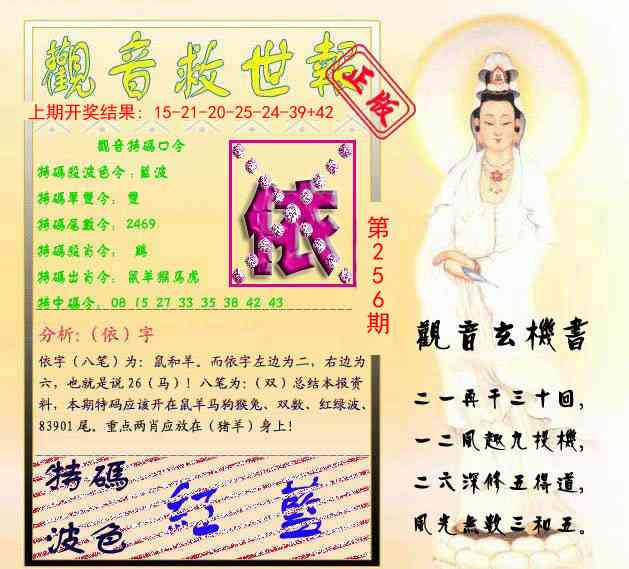 觀音救世報
正版
上期开奖结果：15-21-20-25-24-39+42
觀音特碼口令
特碼殺波色令：藍波
特碼單雙令：雙
特碼尾數令：2469
特碼殺肖令：
特碼出肖令：鼠羊猴马虎
特中碼令：08 15 27 33 35 38 42 43
依
第256期
分析:（依）字
依字（八笔）为：鼠和羊。而依字左边为二，右边为
六，也就是说26（马）！八笔为：（双）总结本报资
料，本期特码应该开在鼠羊马狗猴兔、双数、红绿波、
83901尾。重点两肖应放在（猪羊）身上！
特碼
波色
紅 藍
觀音玄機書
二一再干三十回，
一二風趣九投機，
二六深修五得道，
風光無数三和五。